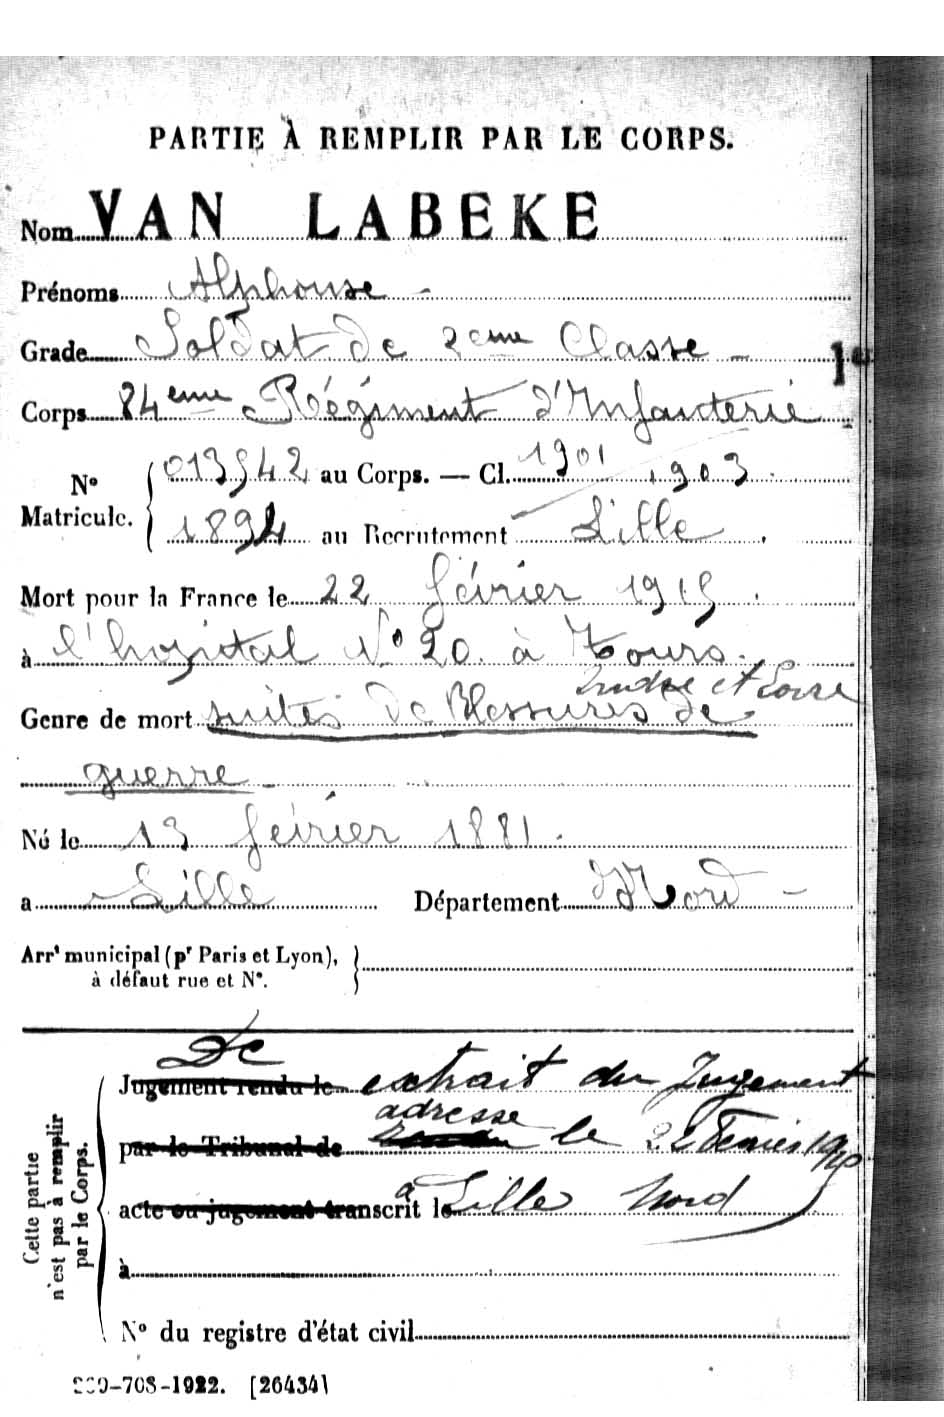 PARTIE À REMPLIR PAR LE CORPS.
Nom VAN LABEKE
Prénoms Alphonse -
Grade Soldat de 2eme Classe -
Corps 84eme Régiment d'Infanterie
N° Matricule. 013542 au Corps. — Cl. 1901 1903
1894 au Recrutement Lille
Mort pour la France le 22 février 1915
à l'hopital N° 20 à Tours.
Indre et Loire
Genre de mort suites de Blessures de
guerre -
Né le 13 février 1881.
a Lille Département Nord -
Arrt municipal (pr Paris et Lyon),
à défaut rue et N°.
De
Jugement rendu le extrait du Jugement
adresse
par le Tribunal de le 22 Fevrier
acte ou jugement transcrit le à Lille Nord
à
N° du registre d'état civil
Cette partie
n'est pas à remplir
par le Corps.
-708-1922. [26434]